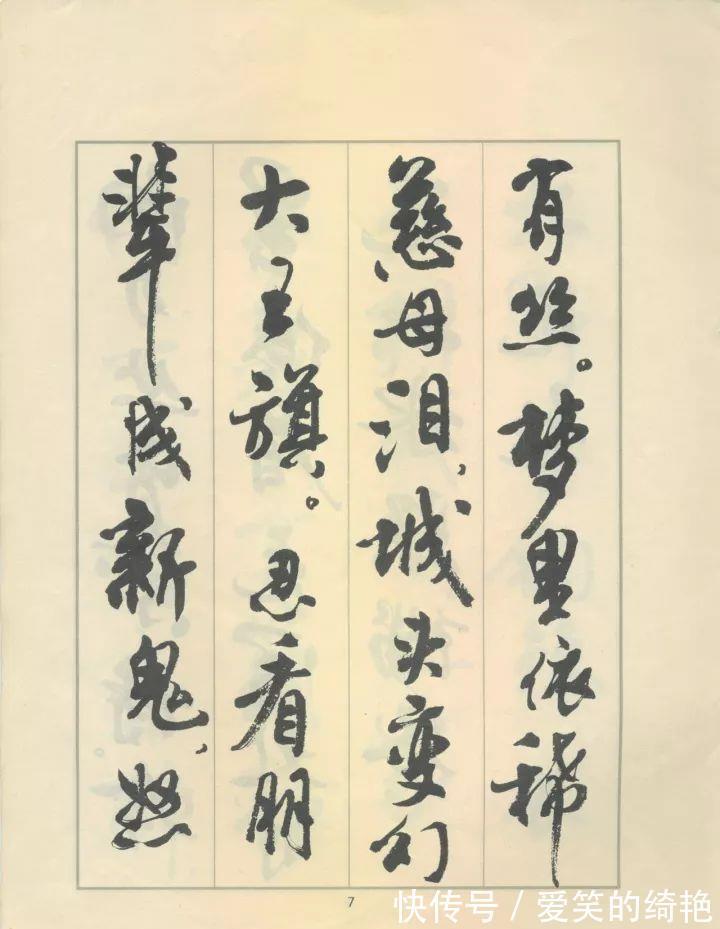 有丝。梦里依稀
慈母泪，城头变幻
大王旗。忍看朋
辈成新鬼，怒
7
快传号／爱笑的绮艳